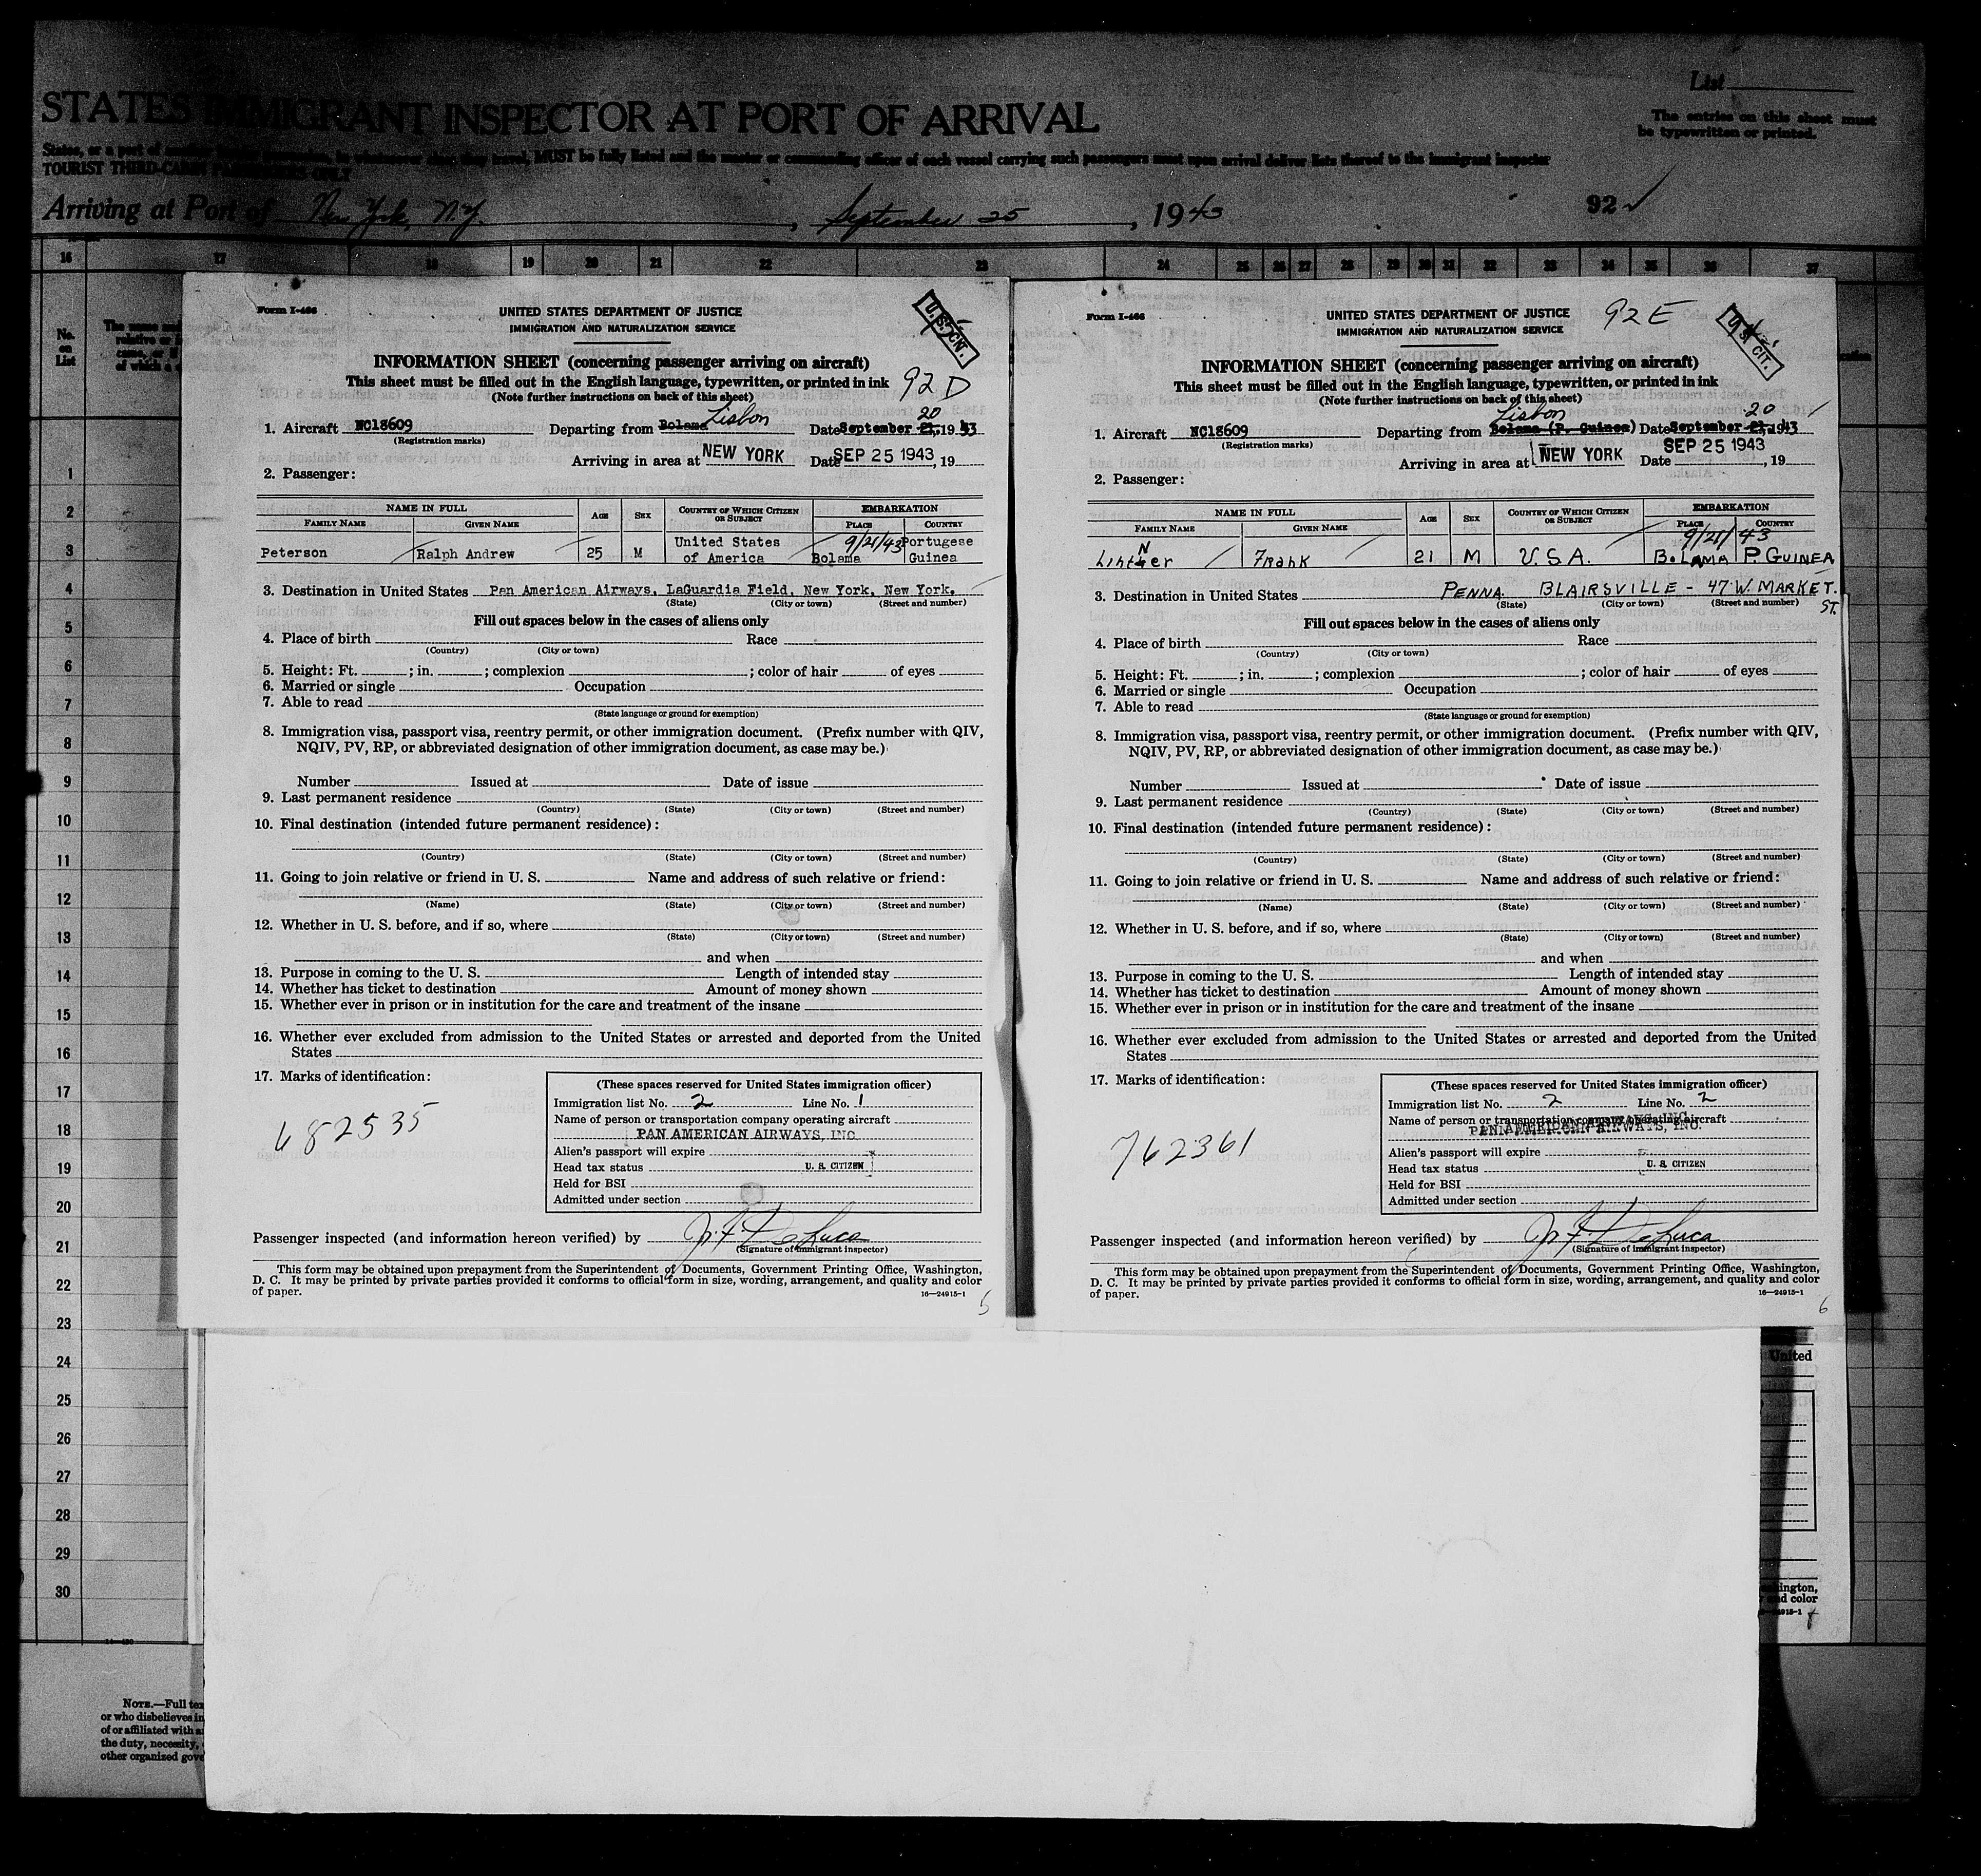 List
STATES IMMIGRANT INSPECTOR AT PORT OF ARRIVAL
The entries on this sheet must
be typewritten or printed.
States, or a part of another MUST be fully listed and the master or commanding officer of each vessel carrying such passengers must upon arrival deliver lists thereof to the immigrant inspector
TOURIST THIRD-CABIN PASSENGERS ONLY
Arriving at Port of New York, N.Y. , September 25 , 1943
92
16 17 18 19 20 21 22 23 24 25 26 27 28 29 30 31 32 33 34 35 36 37
No. on List
Form I-466
UNITED STATES DEPARTMENT OF JUSTICE
IMMIGRATION AND NATURALIZATION SERVICE
U.S. CIT.
INFORMATION SHEET (concerning passenger arriving on aircraft)
This sheet must be filled out in the English language, typewritten, or printed in ink
92 D
(Note further instructions on back of this sheet)
Lisbon 20
1. Aircraft NC18609 Departing from Bolama Date September 21, 1943
(Registration marks)
Arriving in area at NEW YORK Date SEP 25 1943, 19
2. Passenger:
NAME IN FULL AGE SEX COUNTRY OF WHICH CITIZEN OR SUBJECT EMBARKATION
FAMILY NAME GIVEN NAME PLACE COUNTRY
9/21/43
Peterson Ralph Andrew 25 M United States of America Bolama Portugese Guinea
3. Destination in United States Pan American Airways, LaGuardia Field, New York, New York.
(State) (City or town) (Street and number)
Fill out spaces below in the cases of aliens only
4. Place of birth Race
(Country) (City or town)
5. Height: Ft. ; in. ; complexion ; color of hair of eyes
6. Married or single Occupation
7. Able to read
(State language or ground for exemption)
8. Immigration visa, passport visa, reentry permit, or other immigration document. (Prefix number with QIV,
NQIV, PV, RP, or abbreviated designation of other immigration document, as case may be.)
Number Issued at Date of issue
9. Last permanent residence
(Country) (State) (City or town) (Street and number)
10. Final destination (intended future permanent residence):
(Country) (State) (City or town) (Street and number)
11. Going to join relative or friend in U. S. Name and address of such relative or friend:
(Name) (State) (City or town) (Street and number)
12. Whether in U. S. before, and if so, where
(State) (City or town) (Street and number)
and when
13. Purpose in coming to the U. S. Length of intended stay
14. Whether has ticket to destination Amount of money shown
15. Whether ever in prison or in institution for the care and treatment of the insane
16. Whether ever excluded from admission to the United States or arrested and deported from the United
States
17. Marks of identification:
682535
(These spaces reserved for United States immigration officer)
Immigration list No. 2 Line No. 1
Name of person or transportation company operating aircraft
PAN AMERICAN AIRWAYS, INC.
Alien's passport will expire
Head tax status U. S. CITIZEN
Held for BSI
Admitted under section
Passenger inspected (and information hereon verified) by
(Signature of immigrant inspector)
This form may be obtained upon prepayment from the Superintendent of Documents, Government Printing Office, Washington,
D. C. It may be printed by private parties provided it conforms to official form in size, wording, arrangement, and quality and color
of paper.
16—24915-1
5
Form I-466
UNITED STATES DEPARTMENT OF JUSTICE
IMMIGRATION AND NATURALIZATION SERVICE
92 E
U.S. CIT.
INFORMATION SHEET (concerning passenger arriving on aircraft)
This sheet must be filled out in the English language, typewritten, or printed in ink
(Note further instructions on back of this sheet)
Lisbon 20
1. Aircraft NC18609 Departing from Bolama (P. Guinea) Date September 21, 1943
(Registration marks)
Arriving in area at NEW YORK Date SEP 25 1943, 19
2. Passenger:
NAME IN FULL AGE SEX COUNTRY OF WHICH CITIZEN OR SUBJECT EMBARKATION
FAMILY NAME GIVEN NAME PLACE COUNTRY
9/21/43
Frank 21 M U.S.A. BOLAMA P. GUINEA
3. Destination in United States PENNA. BLAIRSVILLE - 47 W. MARKET. ST.
(State) (City or town) (Street and number)
Fill out spaces below in the cases of aliens only
4. Place of birth Race
(Country) (City or town)
5. Height: Ft. ; in. ; complexion ; color of hair of eyes
6. Married or single Occupation
7. Able to read
(State language or ground for exemption)
8. Immigration visa, passport visa, reentry permit, or other immigration document. (Prefix number with QIV,
NQIV, PV, RP, or abbreviated designation of other immigration document, as case may be.)
Number Issued at Date of issue
9. Last permanent residence
(Country) (State) (City or town) (Street and number)
10. Final destination (intended future permanent residence):
(Country) (State) (City or town) (Street and number)
11. Going to join relative or friend in U. S. Name and address of such relative or friend:
(Name) (State) (City or town) (Street and number)
12. Whether in U. S. before, and if so, where
(State) (City or town) (Street and number)
and when
13. Purpose in coming to the U. S. Length of intended stay
14. Whether has ticket to destination Amount of money shown
15. Whether ever in prison or in institution for the care and treatment of the insane
16. Whether ever excluded from admission to the United States or arrested and deported from the United
States
17. Marks of identification:
762361
(These spaces reserved for United States immigration officer)
Immigration list No. 2 Line No. 2
Name of person or transportation company operating aircraft
PAN AMERICAN AIRWAYS, INC.
Alien's passport will expire
Head tax status U. S. CITIZEN
Held for BSI
Admitted under section
Passenger inspected (and information hereon verified) by
(Signature of immigrant inspector)
This form may be obtained upon prepayment from the Superintendent of Documents, Government Printing Office, Washington,
D. C. It may be printed by private parties provided it conforms to official form in size, wording, arrangement, and quality and color
of paper.
16—24915-1
6
1
2
3
4
5
6
7
8
9
10
11
12
13
14
15
16
17
18
19
20
21
22
23
24
25
26
27
28
29
30
United
ington,
and color
NOTE.—Full te
or who disbelieves in
of or affiliated with a
the duty, necessity,
other organized gove